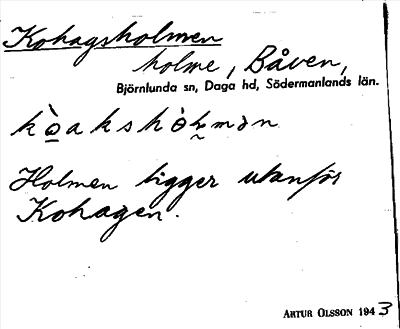 Kohagsholmen
holme, Båven,
Björnlunda sn, Daga hd, Södermanlands län.
Holmen ligger utanför
Kohagen.
ARTUR OLSSON 1943